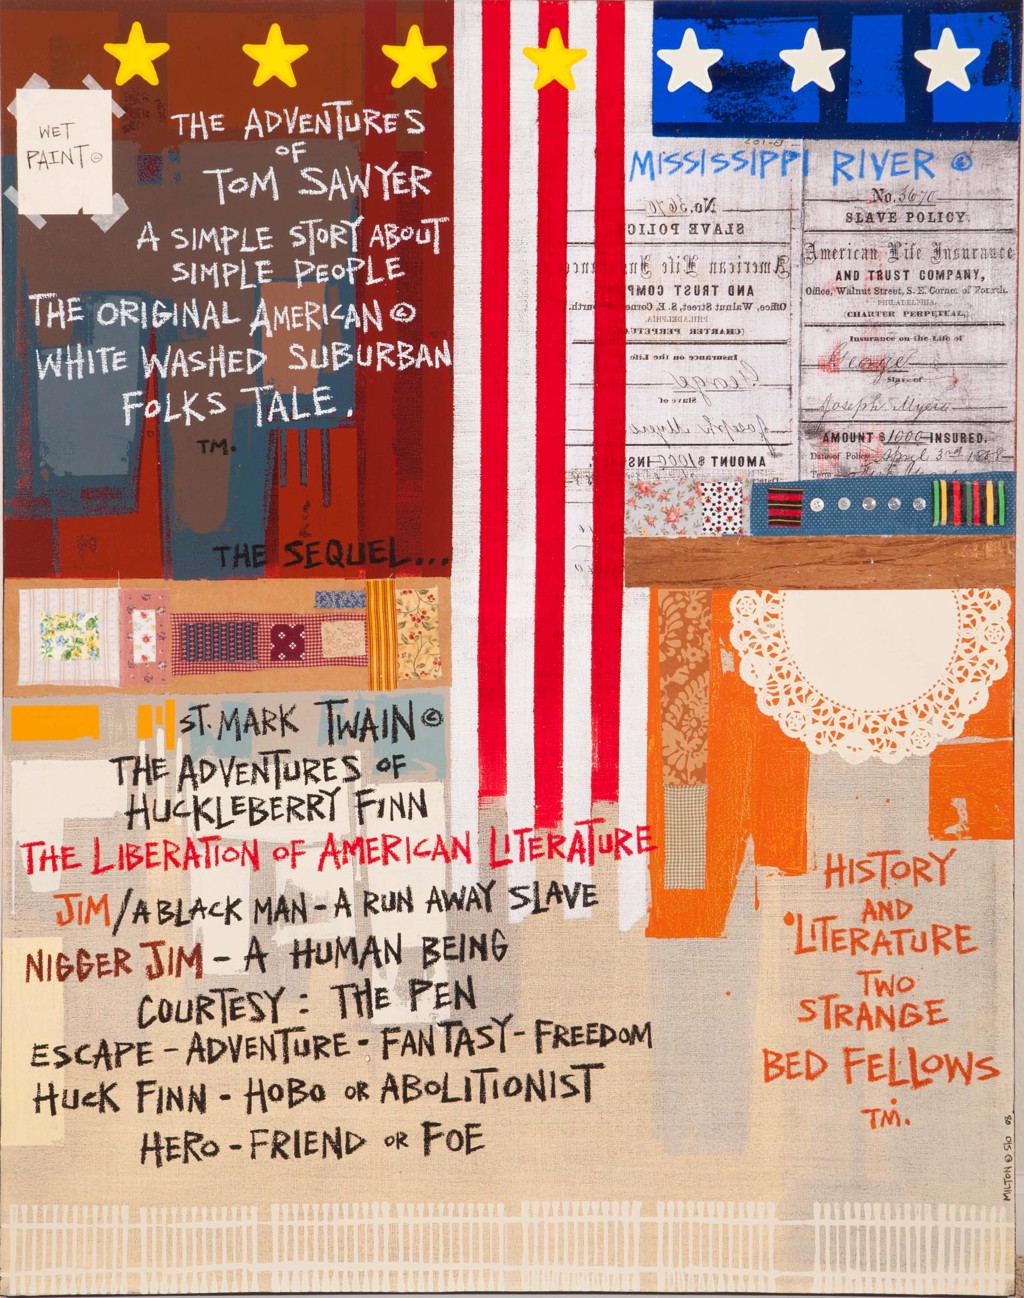 WET
PAINT ©
THE ADVENTURES
OF
TOM SAWYER
A SIMPLE STORY ABOUT
SIMPLE PEOPLE
THE ORIGINAL AMERICAN ©
WHITE WASHED SUBURBAN
FOLKS TALE.
TM.
THE SEQUEL...
MISSISSIPPI RIVER ©
No. 3670
SLAVE POLIC
American Life Insurance
AND TRUST COMP
Office, Walnut Street, S. E. Corner of Fourth.
PHILADELPHIA
(CHARTER PERPETUAL
Insurance on the Life of
George
Slave of
Joseph Myers
AMOUNT $1000 INS
No. 3670
SLAVE POLICY.
American Life Insurance
AND TRUST COMPANY,
Office, Walnut Street, S. E. Corner of Fourth.
PHILADELPHIA.
(CHARTER PERPETUAL,)
Insurance on the Life of
George
Slave of
Joseph Myers
AMOUNT $1000 INSURED.
Date of Policy April 3rd 1858
ST. MARK TWAIN ©
THE ADVENTURES OF
HUCKLEBERRY FINN
THE LIBERATION OF AMERICAN LITERATURE
JIM/A BLACK MAN - A RUN AWAY SLAVE
NIGGER JIM - A HUMAN BEING
COURTESY: THE PEN
ESCAPE - ADVENTURE - FANTASY - FREEDOM
HUCK FINN - HOBO OR ABOLITIONIST
HERO - FRIEND OR FOE
HISTORY
AND
LITERATURE
TWO
STRANGE
BED FELLOWS
TM.
MILTON © 510 08